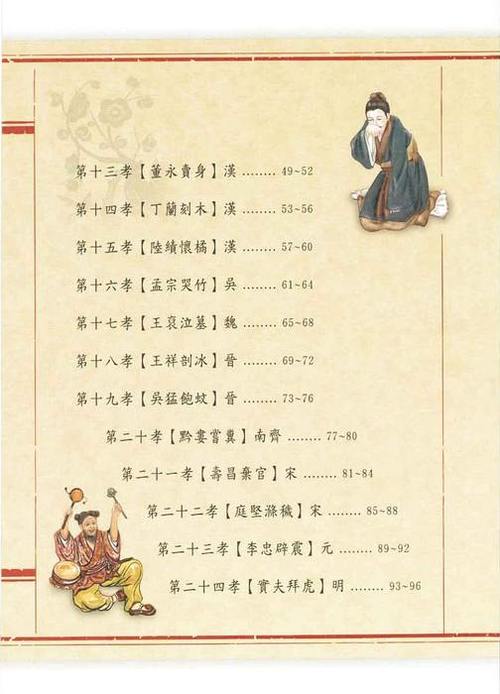 第十三孝【董永賣身】漢 ........ 49~52
第十四孝【丁蘭刻木】漢 ........ 53~56
第十五孝【陸績懷橘】漢 ........ 57~60
第十六孝【孟宗哭竹】吳 ........ 61~64
第十七孝【王裒泣墓】魏 ........ 65~68
第十八孝【王祥剖冰】晉 ........ 69~72
第十九孝【吳猛飽蚊】晉 ........ 73~76
第二十孝【黔婁嘗糞】南齊 ........ 77~80
第二十一孝【壽昌棄官】宋 ........ 81~84
第二十二孝【庭堅滌穢】宋 ........ 85~88
第二十三孝【李忠辟震】元 ........ 89~92
第二十四孝【實夫拜虎】明 ........ 93~96